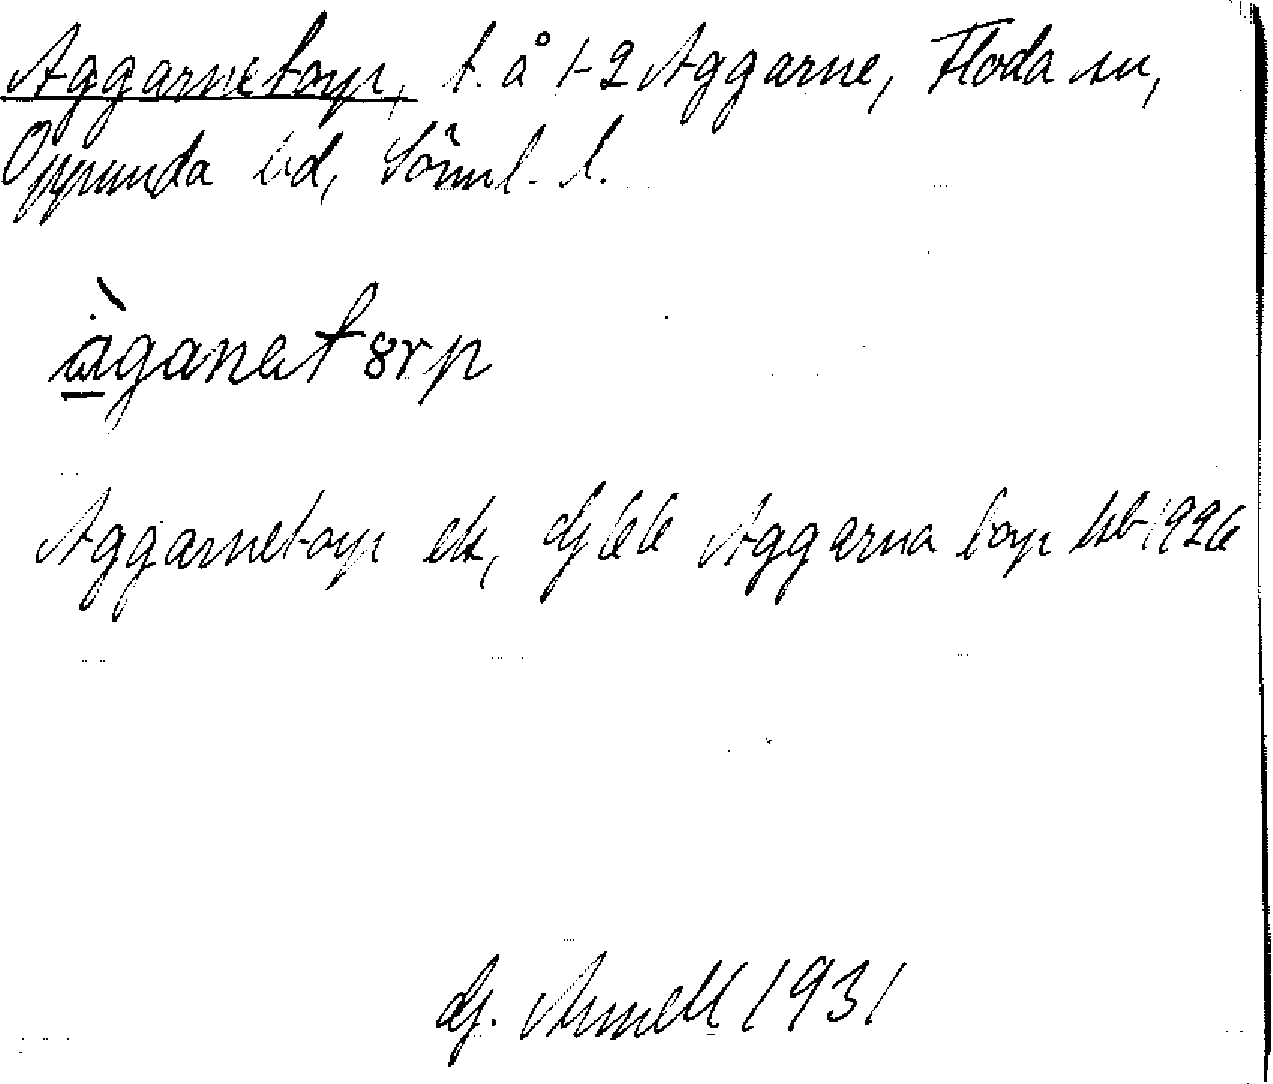 Aggarnetorp, t. å 1-2 Aggarne, Floda sn,
Oppunda hd, Sörml. l.
àganetȣrp
Aggarnetorp ek, Gj 66 Aggarna torp kb 1926
G. Arnell 1931